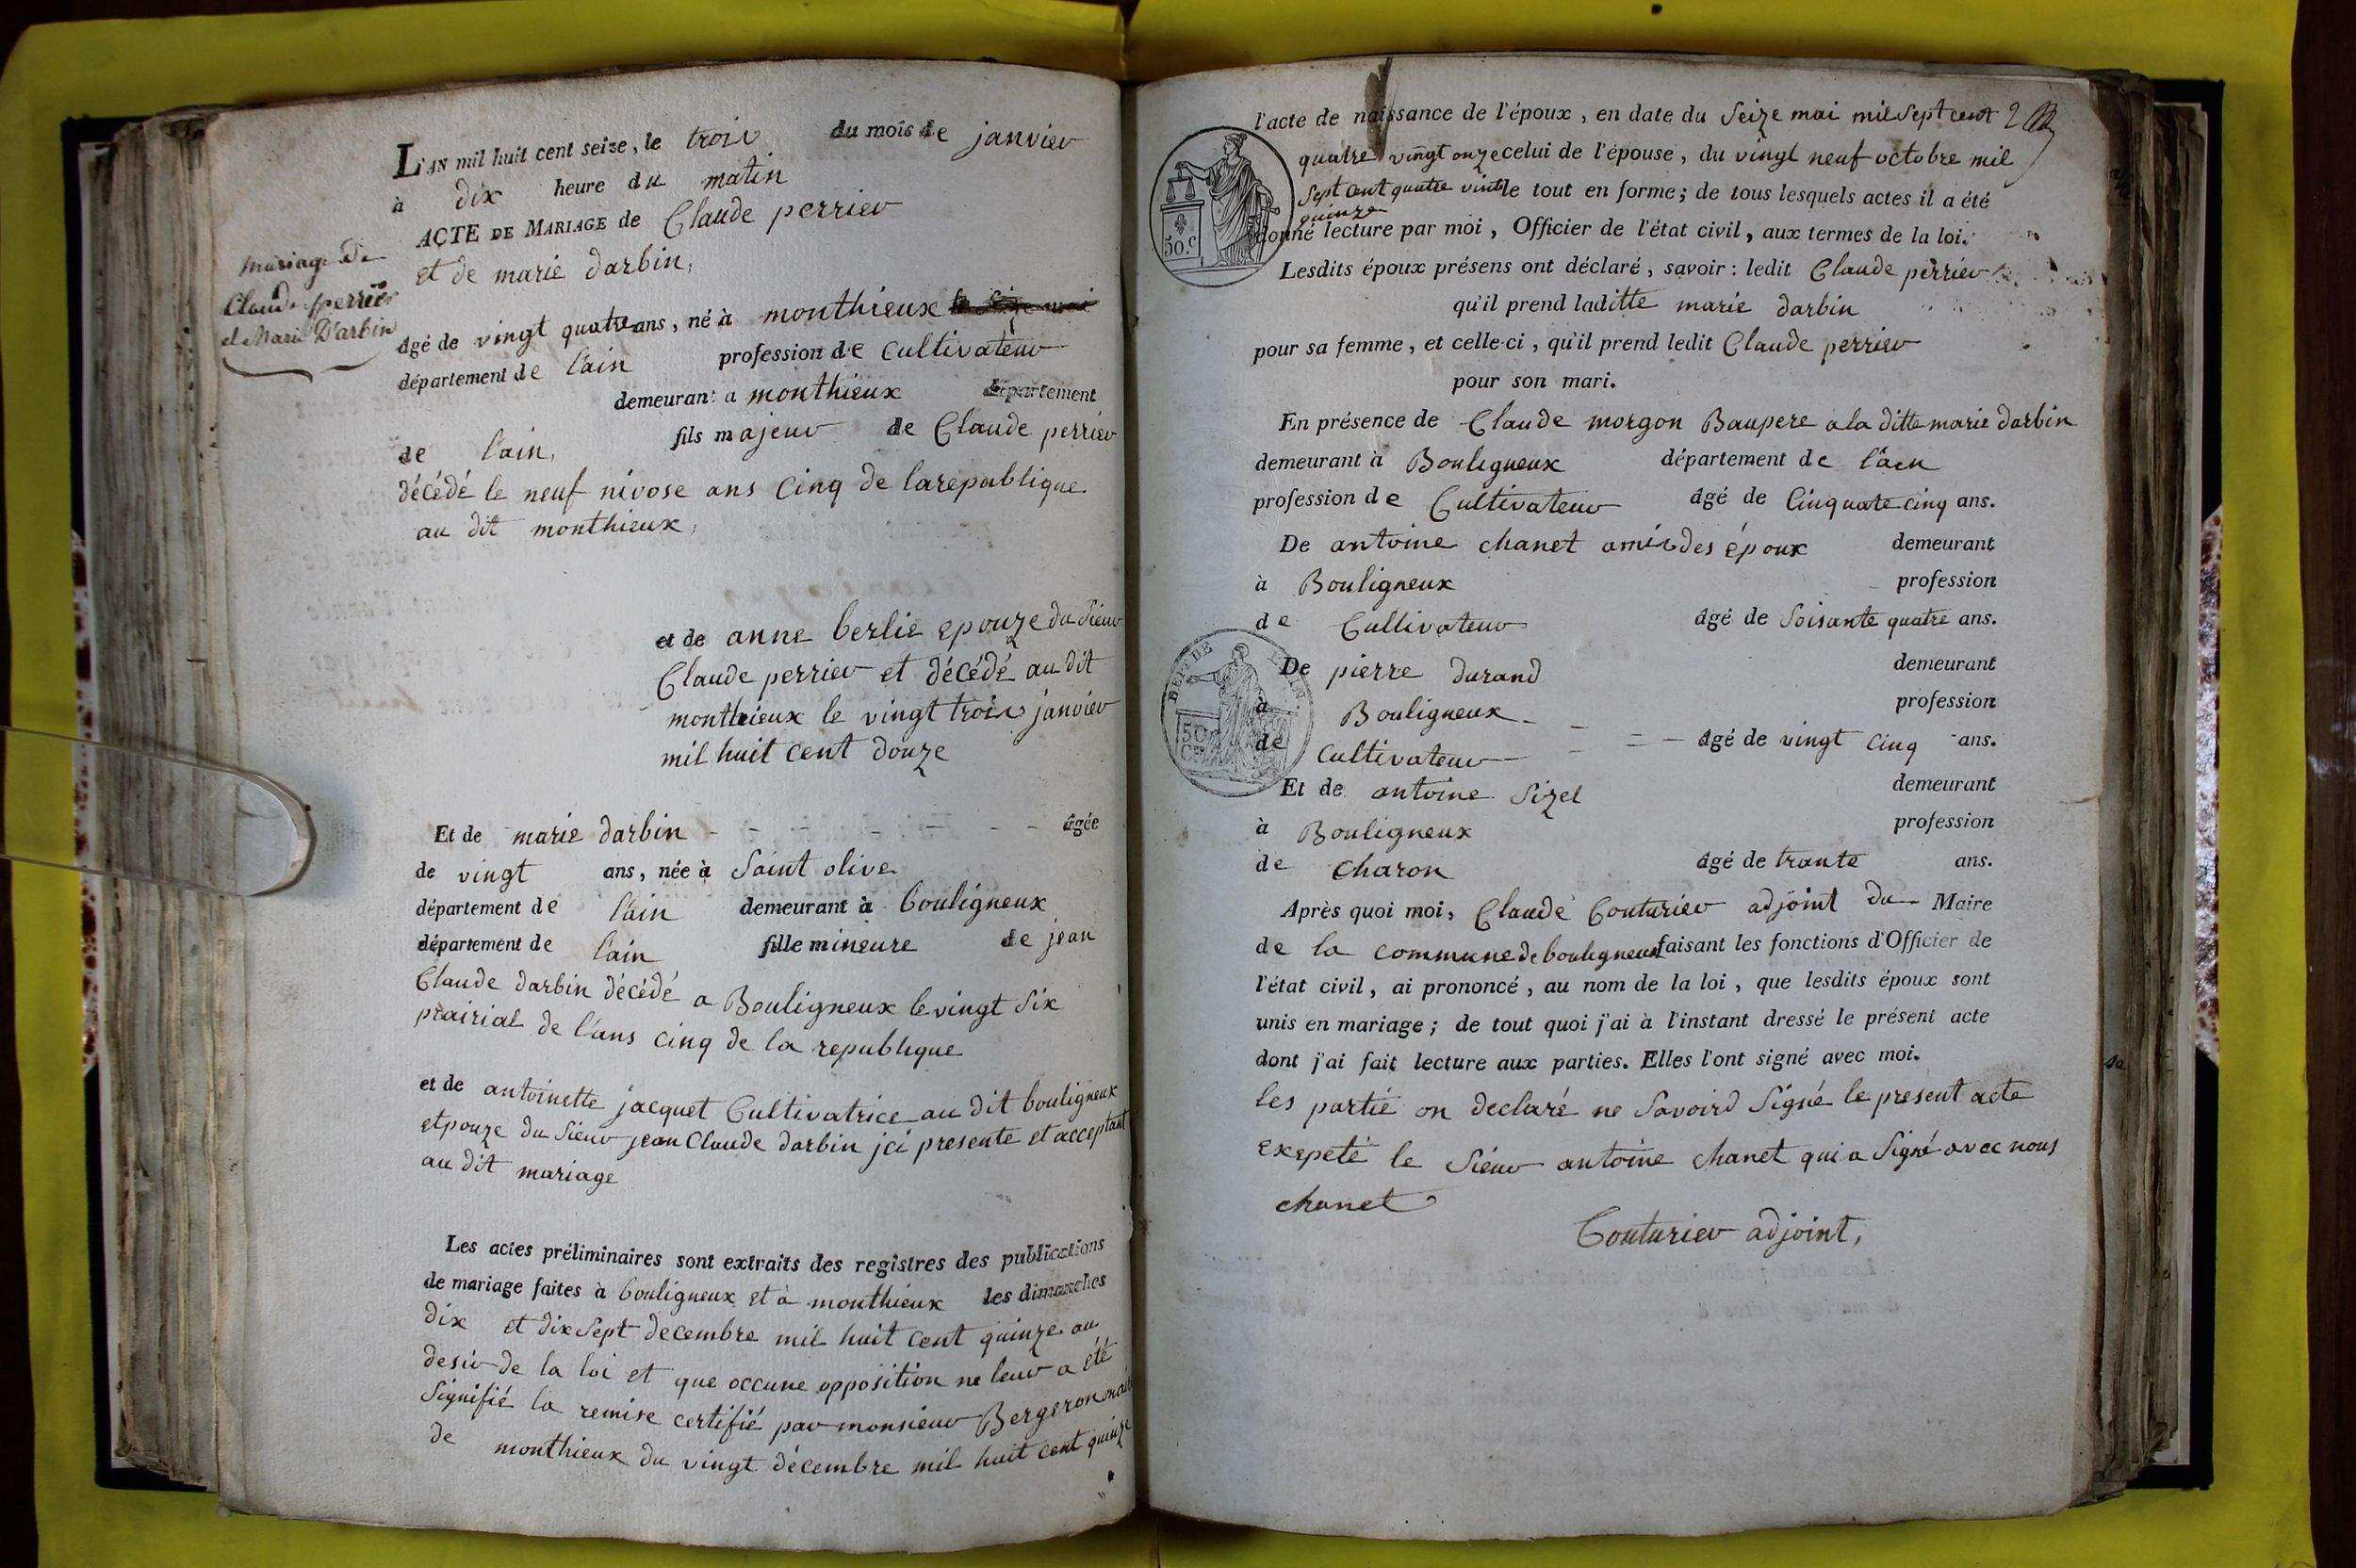 L'AN mil huit cent seize, le trois du mois de janvier
à dix heure du matin
ACTE DE MARIAGE de Claude perrier
et de marie darbin,
mariage De
Claude perrier
et Marie Darbin
âgé de vingt quatre ans, né à monthieux
département de l'ain profession de Cultivateur
demeurant a monthieux département
de l'ain, fils majeur de Claude perrier
décédé le neuf nivose ans Cinq de larepublique
au dit monthieux,
et de anne berlie epouze du Sieur
Claude perrier et décédé au dit
monthieux le vingt trois janvier
mil huit cent douze
Et de marie darbin âgée
de vingt ans, née à Saint olive
département de l'ain demeurant à bouligneux
département de l'ain fille mineure de jean
Claude darbin décédé a Bouligneux le vingt Six
prairial de l'ans cinq de la republique
et de antoinette jacquet Cultivatrice au dit bouligneux
etpouze du Sieur jean Claude darbin jci presente et acceptant
au dit mariage
Les actes préliminaires sont extraits des registres des publications
de mariage faites à bouligneux et à monthieux les dimanches
dix et dix Sept decembre mil huit cent quinze au
desir de la loi et que occune opposition ne leur a été
Signifié la remise certifié par monsieur Bergeron maire
de monthieux du vingt décembre mil huit cent quinze
l'acte de naissance de l'époux, en date du Seize mai mil Sept cent 2
quatre vingt onze celui de l'épouse, du vingt neuf octobre mil
Sept cent quatre vint le tout en forme; de tous lesquels actes il a été
quinze
donné lecture par moi, Officier de l'état civil, aux termes de la loi.
50.c
Lesdits époux présens ont déclaré, savoir: ledit Claude perrier
qu'il prend laditte marie darbin
pour sa femme, et celle-ci, qu'il prend ledit Claude perrier
pour son mari.
En présence de Claude morgon Baupere a la ditte marie darbin
demeurant à Bouligneux département de l'ain
profession de Cultivateur âgé de Cinquate cinq ans.
De antoine chanet amis des époux demeurant
à Bouligneux profession
de Cultivateur âgé de Soisante quatre ans.
DEPT DE L'AIN
50 Ces
De pierre durand demeurant
à Bouligneux profession
de Cultivateur âgé de vingt Cinq ans.
Et de antoine Sizel demeurant
à Bouligneux profession
de Charon âgé de trante ans.
Après quoi moi, Claude Couturier adjoint du Maire
de la Commune de bouligneux faisant les fonctions d'Officier de
l'état civil, ai prononcé, au nom de la loi, que lesdits époux sont
unis en mariage; de tout quoi j'ai à l'instant dressé le présent acte
dont j'ai fait lecture aux parties. Elles l'ont signé avec moi.
les partie on declaré ne Savoird Signé le present acte
exepeté le Sieur antoine chanet qui a Signé avec nous
chanet
Couturier adjoint,